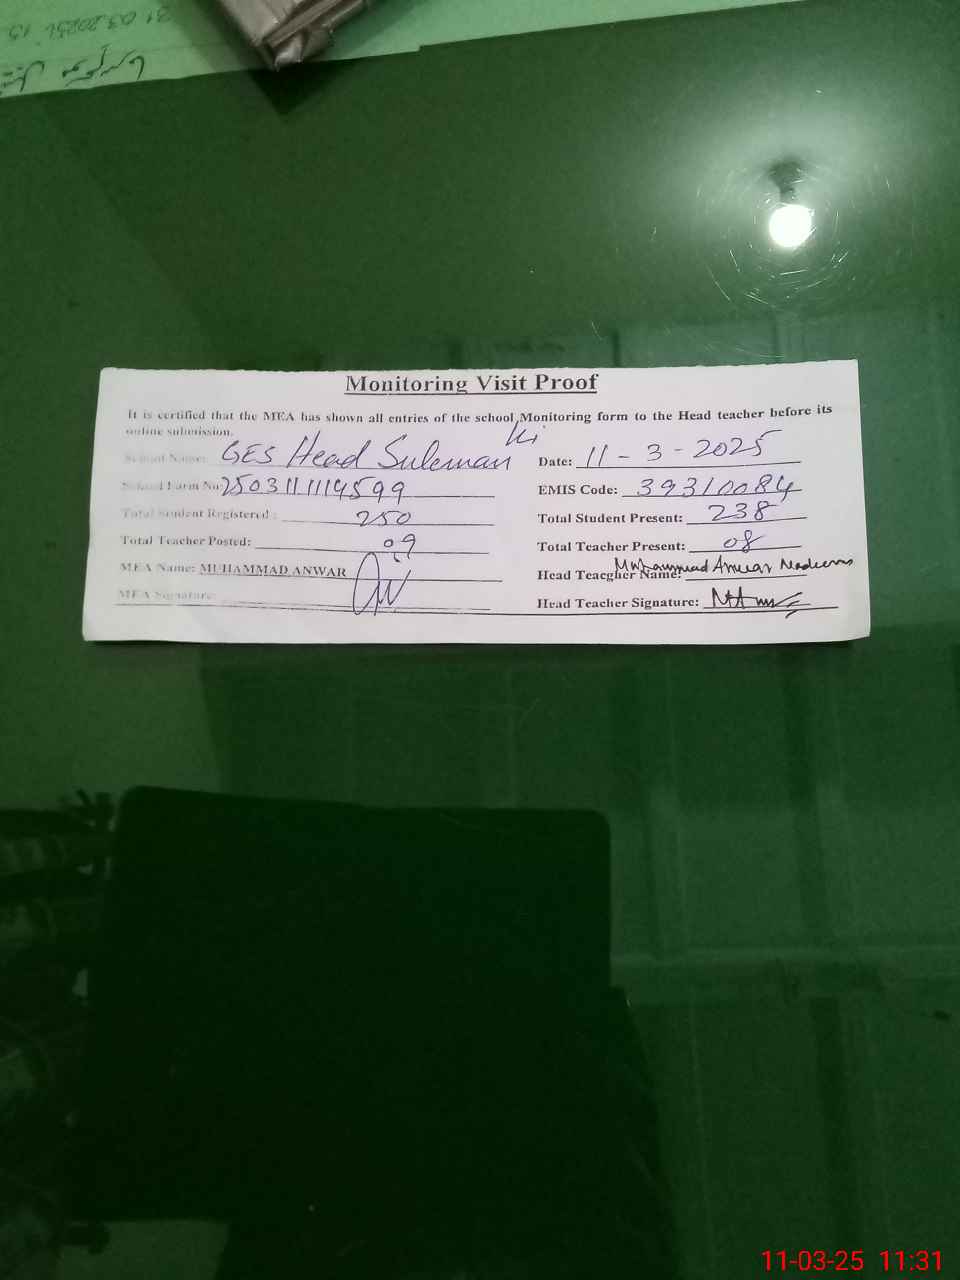 31.03.2025
Monitoring Visit Proof
It is certified that the MEA has shown all entries of the school Monitoring form to the Head teacher before its
online submission.
School Name: GES Head Suleman Ki
Date: 11-3-2025
School Form No: 2503111114599
EMIS Code: 39310084
Total Student Registered: 250
Total Student Present: 238
Total Teacher Posted: 09
Total Teacher Present: 08
MEA Name: MUHAMMAD ANWAR
Head Teacgher Name: Muhammad Anwar Nadeem
MEA Signature:
Head Teacher Signature:
11-03-25 11:31